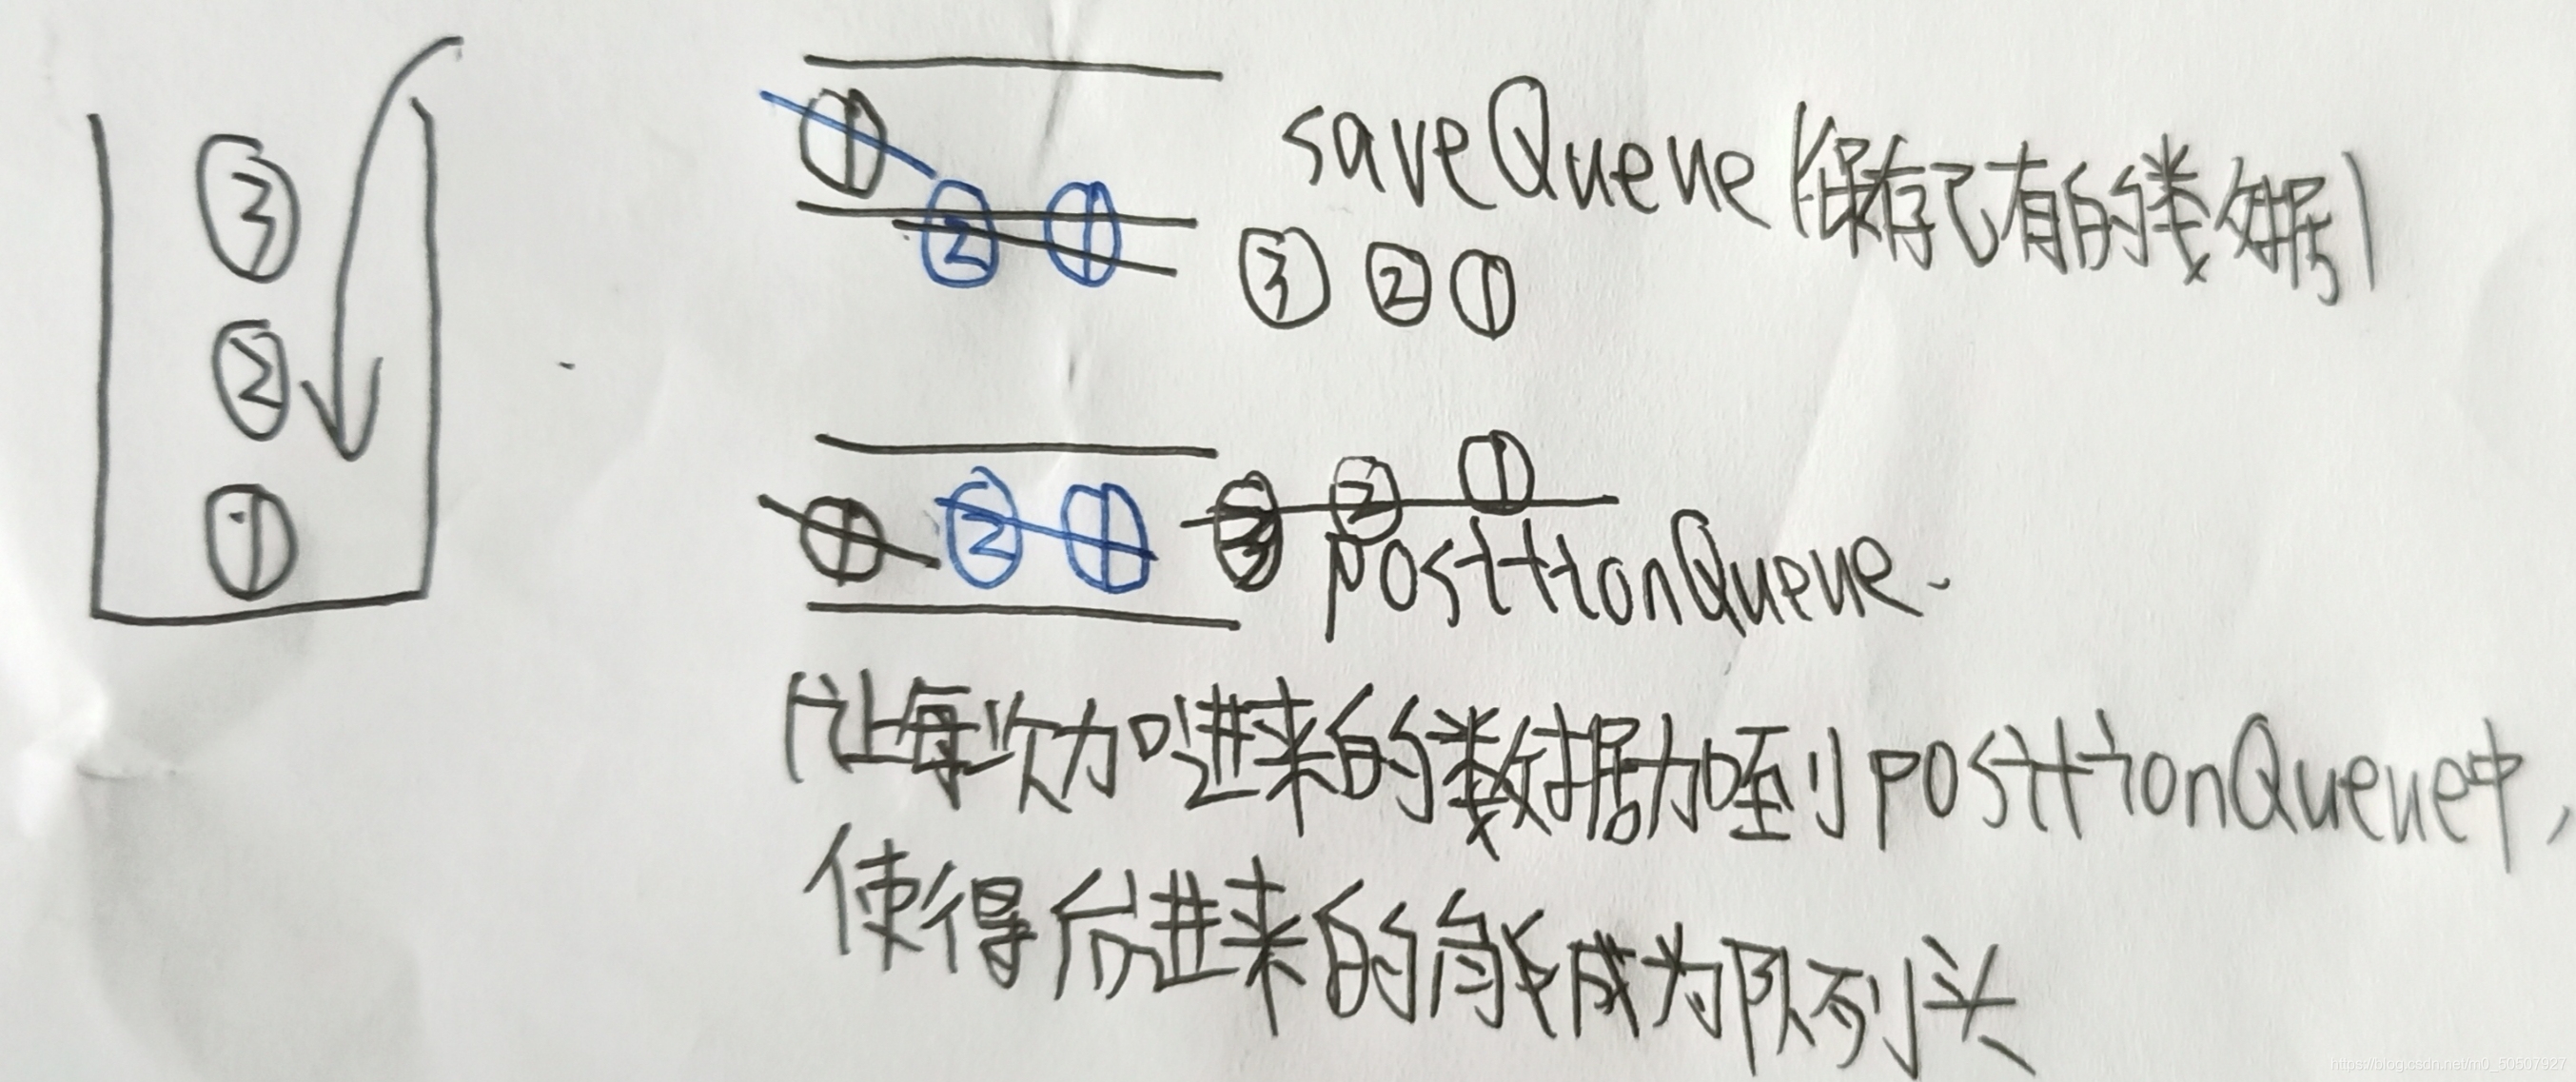 ① saveQueue（保存已有的类数据）
② ①
③ ② ①
③
②
①
① ② ① ③ ② ①
posittionQueue.
（让每次加进来的类数据加至到posittionQueue中，
使得后进来的能成为队列头
https://blog.csdn.net/m0_5950792